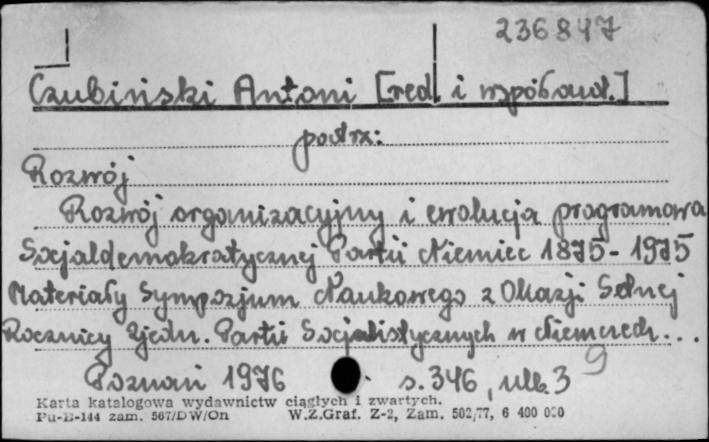 236847
Czubiński Antoni [red. i współaut.]
patrz:
Rozwój
Rozwój organizacyjny i ewolucja programowa
Socjaldemokratycznej Partii Niemiec 1875-1975
Materiały Sympozjum Naukowego z Okazji Setnej
Rocznicy Zjedn. Partii Socjalistycznych w Niemczech...
9
Poznań 1976 s. 346, nlb. 3
Karta katalogowa wydawnictw ciągłych i zwartych.
Pu-B-144 zam. 567/DW/On W.Z.Graf. Z-2, Zam. 502/77, 6 400 000